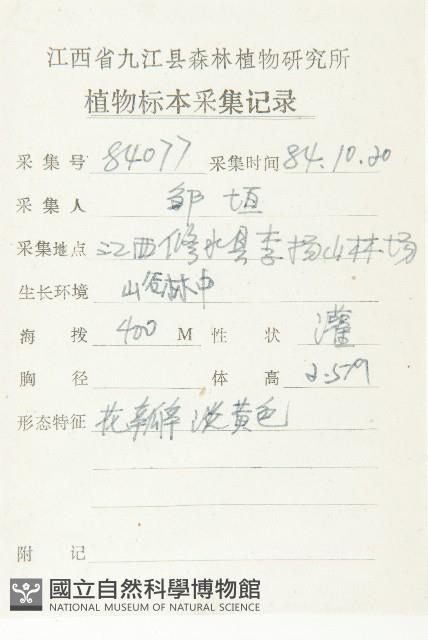 江西省九江县森林植物研究所
植物标本采集记录
采集号 84077 采集时间 84.10.20
采集人 邹垣
采集地点 江西修水县李扬山林场
生长环境 山谷林中
海拨 400 M 性状 灌
胸径 体高 2.5m
形态特征 花新鲜 淡黄色
附记
國立自然科學博物館
NATIONAL MUSEUM OF NATURAL SCIENCE